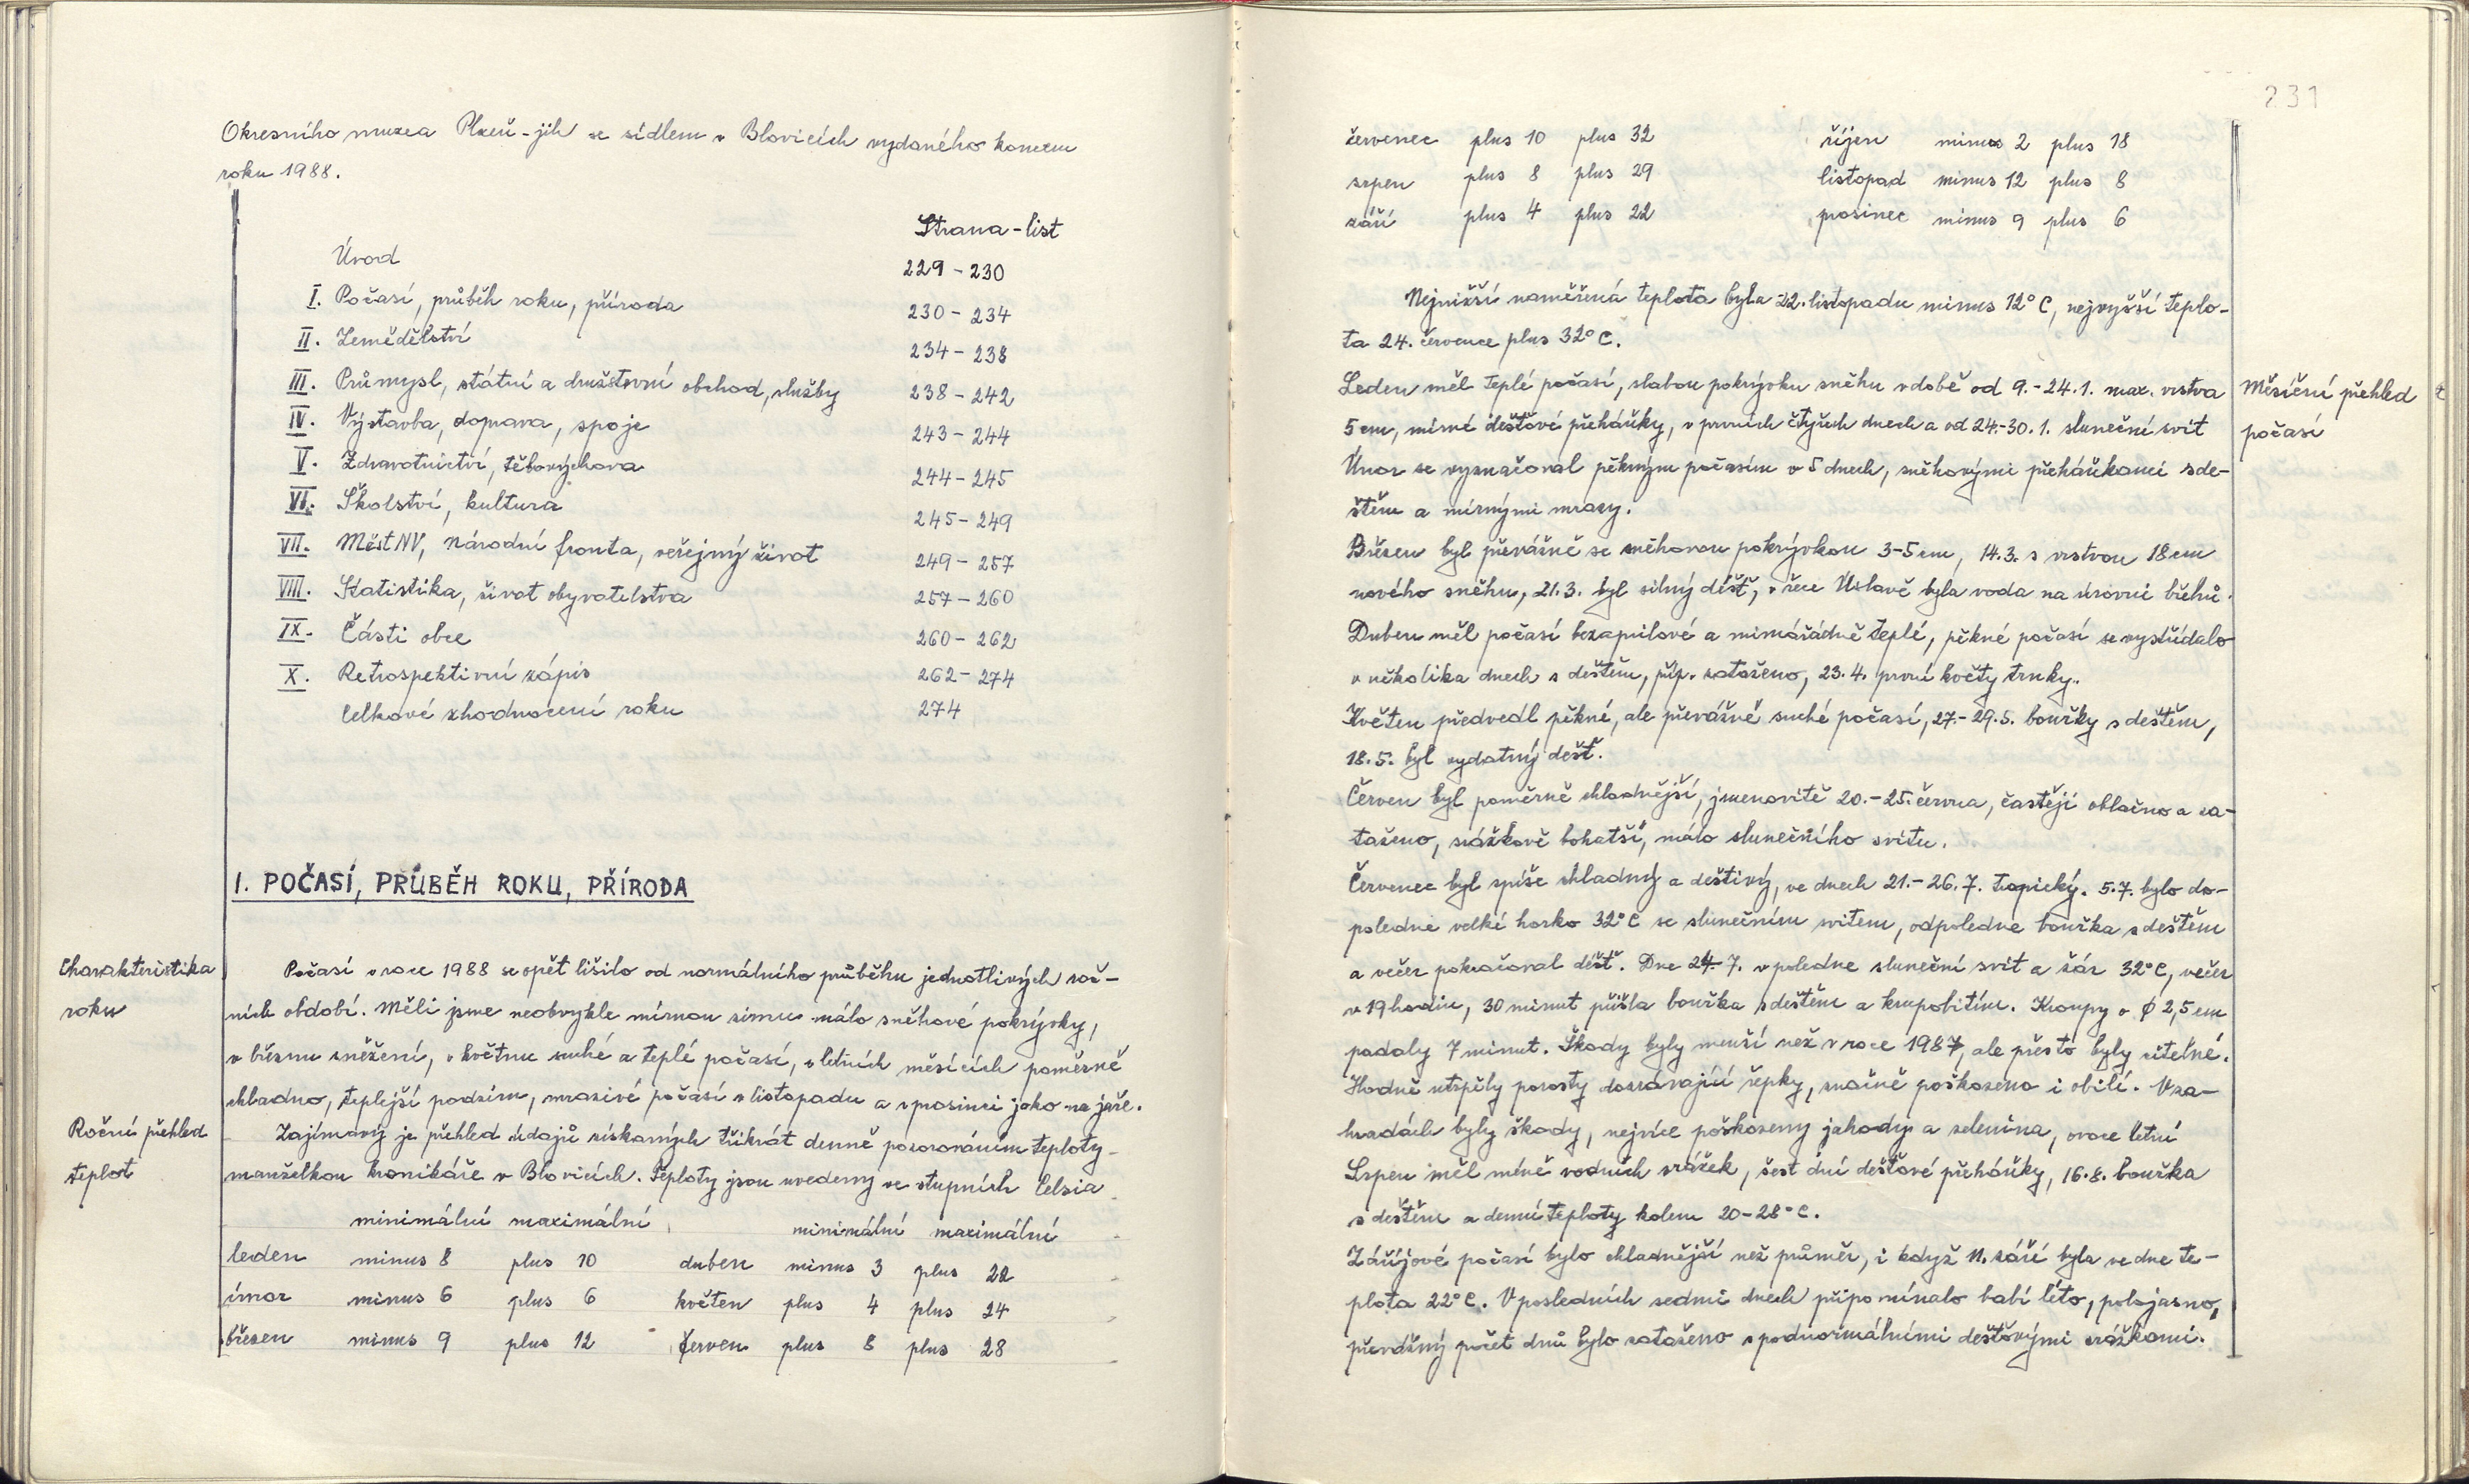 Okresního muzea Plzeň-jih se sídlem v Blovicích vydaného koncem
roku 1988.
Strana-list
Úvod 229-230
I. Počasí, průběh roku, příroda 230-234
II. Zemědělství 234-238
III. Průmysl, státní a družstevní obchod, služby 238-242
IV. Výstavba, doprava, spoje 243-244
V. Zdravotnictví, tělovýchova 244-245
VI. Školství, kultura 245-249
VII. MěstNV, Národní fronta, veřejný život 249-257
VIII. Statistika, život obyvatelstva 257-260
IX. Části obce 260-262
X. Retrospektivní zápis 262-274
Celkové zhodnocení roku 274
I. POČASÍ, PRŮBĚH ROKU, PŘÍRODA
Charakteristika
roku
Počasí v roce 1988 se opět lišilo od normálního průběhu jednotlivých roč-
ních období. Měli jsme neobvykle mírnou zimu málo sněhové pokrývky,
v březnu sněžení, v květnu suché a teplé počasí, v letních měsících poměrně
chladno, teplejší podzim, mrazivé počasí v listopadu a v prosinci jako na jaře.
Roční přehled
teplot
Zajímavý je přehled údajů získaných třikrát denně pozorováním teploty
manželkou kronikáře v Blovicích. Teploty jsou uvedeny ve stupních Celsia
minimální maximální minimální maximální
leden minus 8 plus 10 duben minus 3 plus 22
únor minus 6 plus 6 květen plus 4 plus 24
březen minus 9 plus 12 červen plus 8 plus 28
231
červenec plus 10 plus 32 říjen minus 2 plus 18
srpen plus 8 plus 29 listopad minus 12 plus 8
září plus 4 plus 22 prosinec minus 9 plus 6
Nejnižší naměřená teplota byla 22. listopadu minus 12°C, nejvyšší teplo-
ta 24. července plus 32°C.
Měsíční přehled
počasí
Leden měl teplé počasí, slabou pokrývku sněhu v době od 9.-24.1. max. vrstva
5 cm, mírné dešťové přeháňky, v prvních čtyřech dnech a od 24.-30.1. sluneční svit
Únor se vyznačoval pěkným počasím v 5 dnech, sněhovými přeháňkami s de-
štěm a mírnými mrazy.
Březen byl převážně se sněhovou pokrývkou 3-5 cm, 14.3. s vrstvou 18 cm
nového sněhu, 21.3. byl silný déšť, v řece Úslavě byla voda na úrovni břehů.
Duben měl počasí bezaprilové a mimořádně teplé, pěkné počasí se vystřídalo
v několika dnech s deštěm, příp. zataženo, 23.4. první květy trnky.
Květen předvedl pěkné, ale převážně suché počasí, 27.-29.5. bouřky s deštěm,
18.5. byl vydatný déšť.
Červen byl poměrně chladnější, jmenovitě 20.-25. června, častěji oblačno a za-
taženo, srážkově bohatší, málo slunečního svitu.
Červenec byl spíše chladný a deštivý, ve dnech 21.-26.7. tropický. 5.7. bylo do-
poledne velké horko 32°C se slunečním svitem, odpoledne bouřka s deštěm
a večer pokračoval déšť. Dne 24.7. v poledne sluneční svit a žár 32°C, večer
v 19 hodin, 30 minut přišla bouřka s deštěm a krupobitím. Kroupy o Ø 2,5 cm
padaly 7 minut. Škody byly menší než v roce 1987, ale přesto byly citelné.
Hodně utrpěly porosty dozrávající řepky, značně poškozeno i obilí. V za-
hradách byly škody, nejvíce poškozeny jahody a zelenina, ovoce letní
Srpen měl méně vodních srážek, šest dní dešťové přeháňky, 16.8. bouřka
s deštěm a denní teploty kolem 20-28°C.
Zářijové počasí bylo chladnější než průměr, i když 11. září byla ve dne te-
plota 22°C. V posledních sedmi dnech připomínalo babí léto, polojasno,
převážný počet dnů bylo zataženo s podnormálními dešťovými srážkami.